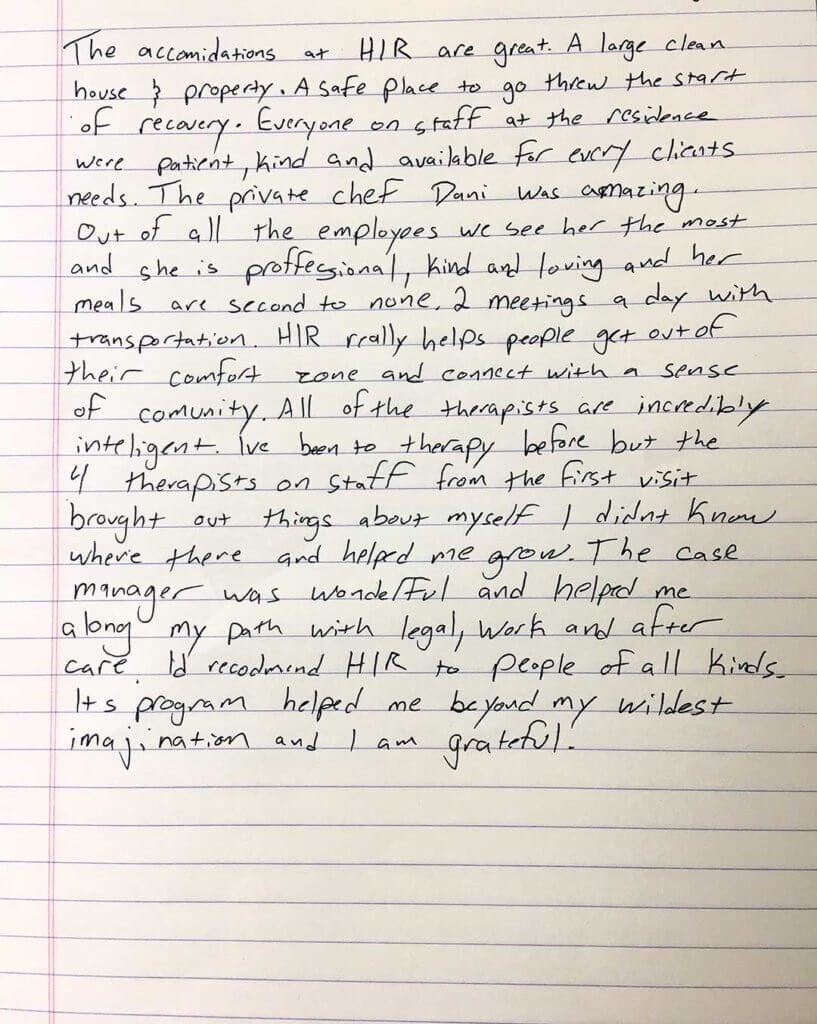 The accomidations at HIR are great. A large clean
house & property. A safe place to go threw the start
of recovery. Everyone on staff at the residence
were patient, kind and available for every clients
needs. The private chef Dani was amazing.
Out of all the employees we see her the most
and she is proffessional, kind and loving and her
meals are second to none. 2 meetings a day with
transportation. HIR really helps people get out of
their comfort zone and connect with a sense
of comunity. All of the therapists are incredibly
inteligent. Ive been to therapy before but the
4 therapists on staff from the first visit
brought out things about myself I didnt know
where there and helped me grow. The case
manager was wondelful and helped me
along my path with legal, work and after
care. Id recodmend HIR to people of all kinds.
Its program helped me beyond my wildest
imajination and I am grateful.